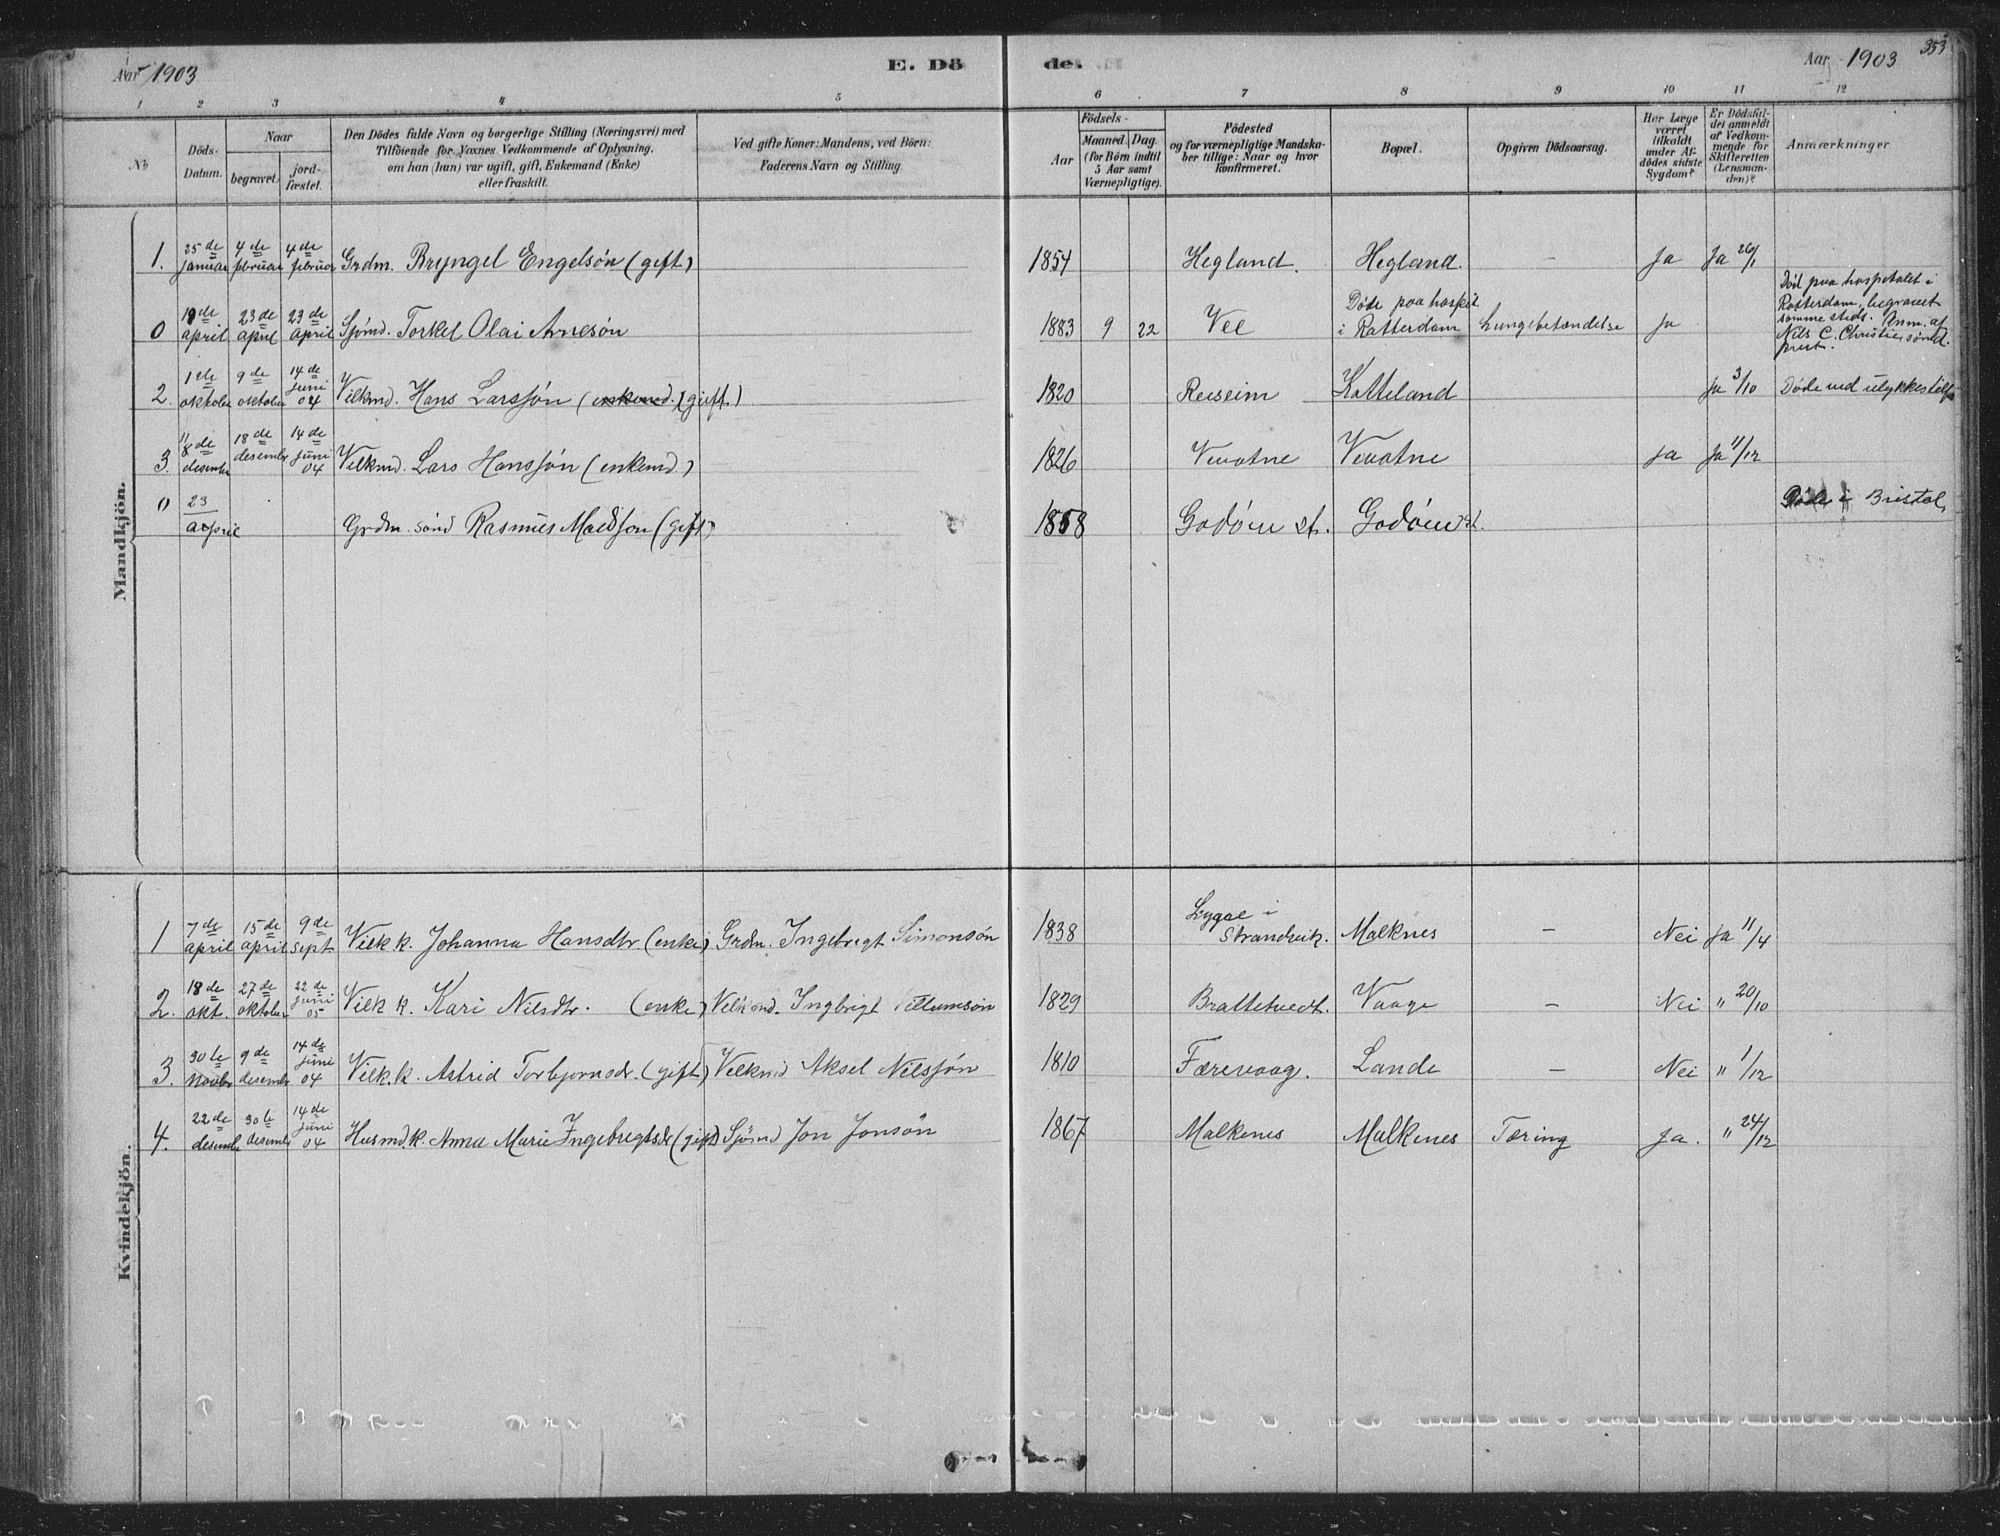 Aar 1903
E. Döde.
Aar 1903
353
1 2 3 4 5 6 7 8 9 10 11 12
№
Döds-Datum.
Naar
begravet.
jordfæstet.
Den Dödes fulde Navn og borgerlige Stilling (Næringsvei) med
Tilföiende for Voxnes Vedkommende af Oplysning,
om han (hun) var ugift, gift, Enkemand (Enke)
eller fraskilt.
Ved gifte Koner: Mandens, ved Börn:
Faderens Navn og Stilling.
Födsels-
Aar
Maaned. Dag.
(for Börn indtil
5 Aar samt
Værnepligtige).
Födested
og for værnepligtige Mandska-
ber tillige: Naar og hvor
konfirmeret.
Bopæl.
Opgiven Dödsaarsag.
Har Læge
været
tilkaldt
under Af-
dödes sidste
Sygdom?
Er Dödsfal-
det anmeldt
af Vedkom-
mende for
Skifteretten
(Lensman-
den)?
Anmærkninger
Mandkjön.
1. 25de januar 4de februar 4de februar Grdm. Bryngel Engelsøn (gift) 1854 Hegland. Hegland. – Ja Ja 26/1
0 19de april 23de april 23de april Sjømd. Torkel Olai Arnesøn 1883 9 22 Vee Døde paa hospit. i Rotterdam Lungebetændelse Ja Død paa hospitalet i
Rotterdam, begravet
samme steds. Anm. af
Nils C. Christie, sømd.
prest.
2. 1ste oktober 9de oktober 14de juni 04 Vilkmd. Hans Larssøn (enkemd.) (gift) 1820 Reiseim Kotteland Ja 3/10 Døde ved ulykkestilf.
3. 8de desember 18de desembr 14de juni 04 Vilkmd. Lars Hanssøn (enkemd) 1826 Vevatne Vevatne Ja Ja 11/12
0 23 april Grdm. sönd Rasmus Madsson (gift) 1858 Godøen st. Godøen st. Døde i Bristol
Kvindekjön.
1 7de april 15de april 9de sept. Vilk k. Johanna Hansdtr. (enke) Grdm. Ingebrigt Simonsøn 1838 Lygre i Strandvik. Malknes – Nei Ja 11/4
2. 18de okt. 27de oktober 22de juni 05 Vilk k. Kari Nilsdtr. (enke) Velkmd. Ingbrigt Villumsøn 1829 Brattetvedt. Vaage – Nei " 20/10
3. 30te novbr 9de desembr 14de juni 04 Vilk. k. Astrid Torbjornsdr. (gift) Velkmd Aksel Nilssøn 1810 Færevaag. Lande – Nei " 1/12
4. 22de desembr 30te desembr 14de juni 04 Husmd. k. Anna Marie Ingebregtsdr (gift) Sjømd Jon Jonsøn 1867 Malkenes Malkenes Tæring Ja. " 24/12